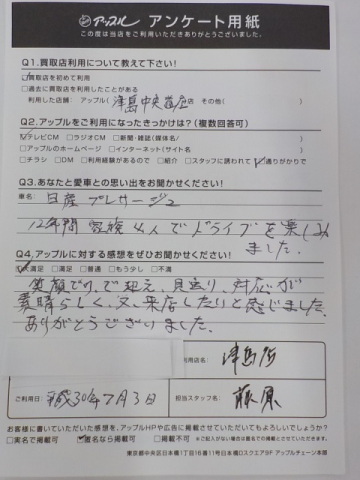 アップル アンケート用紙
この度は当店をご利用いただきありがとうございました。
Q1.買取店利用について教えて下さい!
☑買取店を初めて利用
□過去に買取店を利用したことがある
利用した店舗: アップル( 津島中央道店 その他( )
Q2.アップルをご利用になったきっかけは?(複数回答可)
☑テレビCM □ラジオCM □新聞・雑誌(媒体名/ )
□アップルのホームページ □インターネット(サイト名 )
□チラシ □DM □利用経験があるので □紹介 □スタッフに誘われて ☑通りがかりで
Q3.あなたと愛車との思い出をお聞かせください!
車名: 日産 プレサージュ
12年間 家族4人でドライブを楽しみ
ました。
Q4.アップルに対する感想をぜひお聞かせください!
☑大満足 □満足 □普通 □もう少し □不満
笑顔での、で迎え、見送り、対応が
素晴らしく、又、来店したいと感じました。
ありがとうございました。
利用店名: 津島店
ご利用日: 平成30年7月3日 担当スタッフ名: 藤原
お客様に書いていただいた感想を、アップルHPや広告に掲載させていただいてもよろしいでしょうか?
□実名で掲載可 ☑匿名なら掲載可 □掲載不可 ※ご記入がない場合は匿名での掲載とさせていただきます。
東京都中央区日本橋1丁目16番11号日本橋DスクエアSF アップルチェーン本部